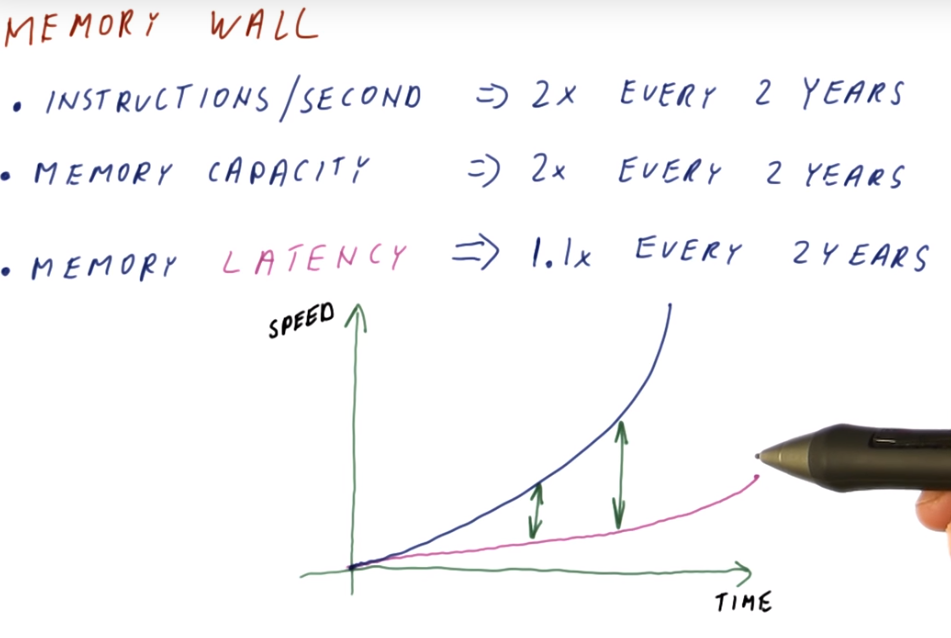 MEMORY WALL
• INSTRUCTIONS/SECOND => 2x EVERY 2 YEARS
• MEMORY CAPACITY => 2x EVERY 2 YEARS
• MEMORY LATENCY => 1.1x EVERY 2 YEARS
SPEED
TIME